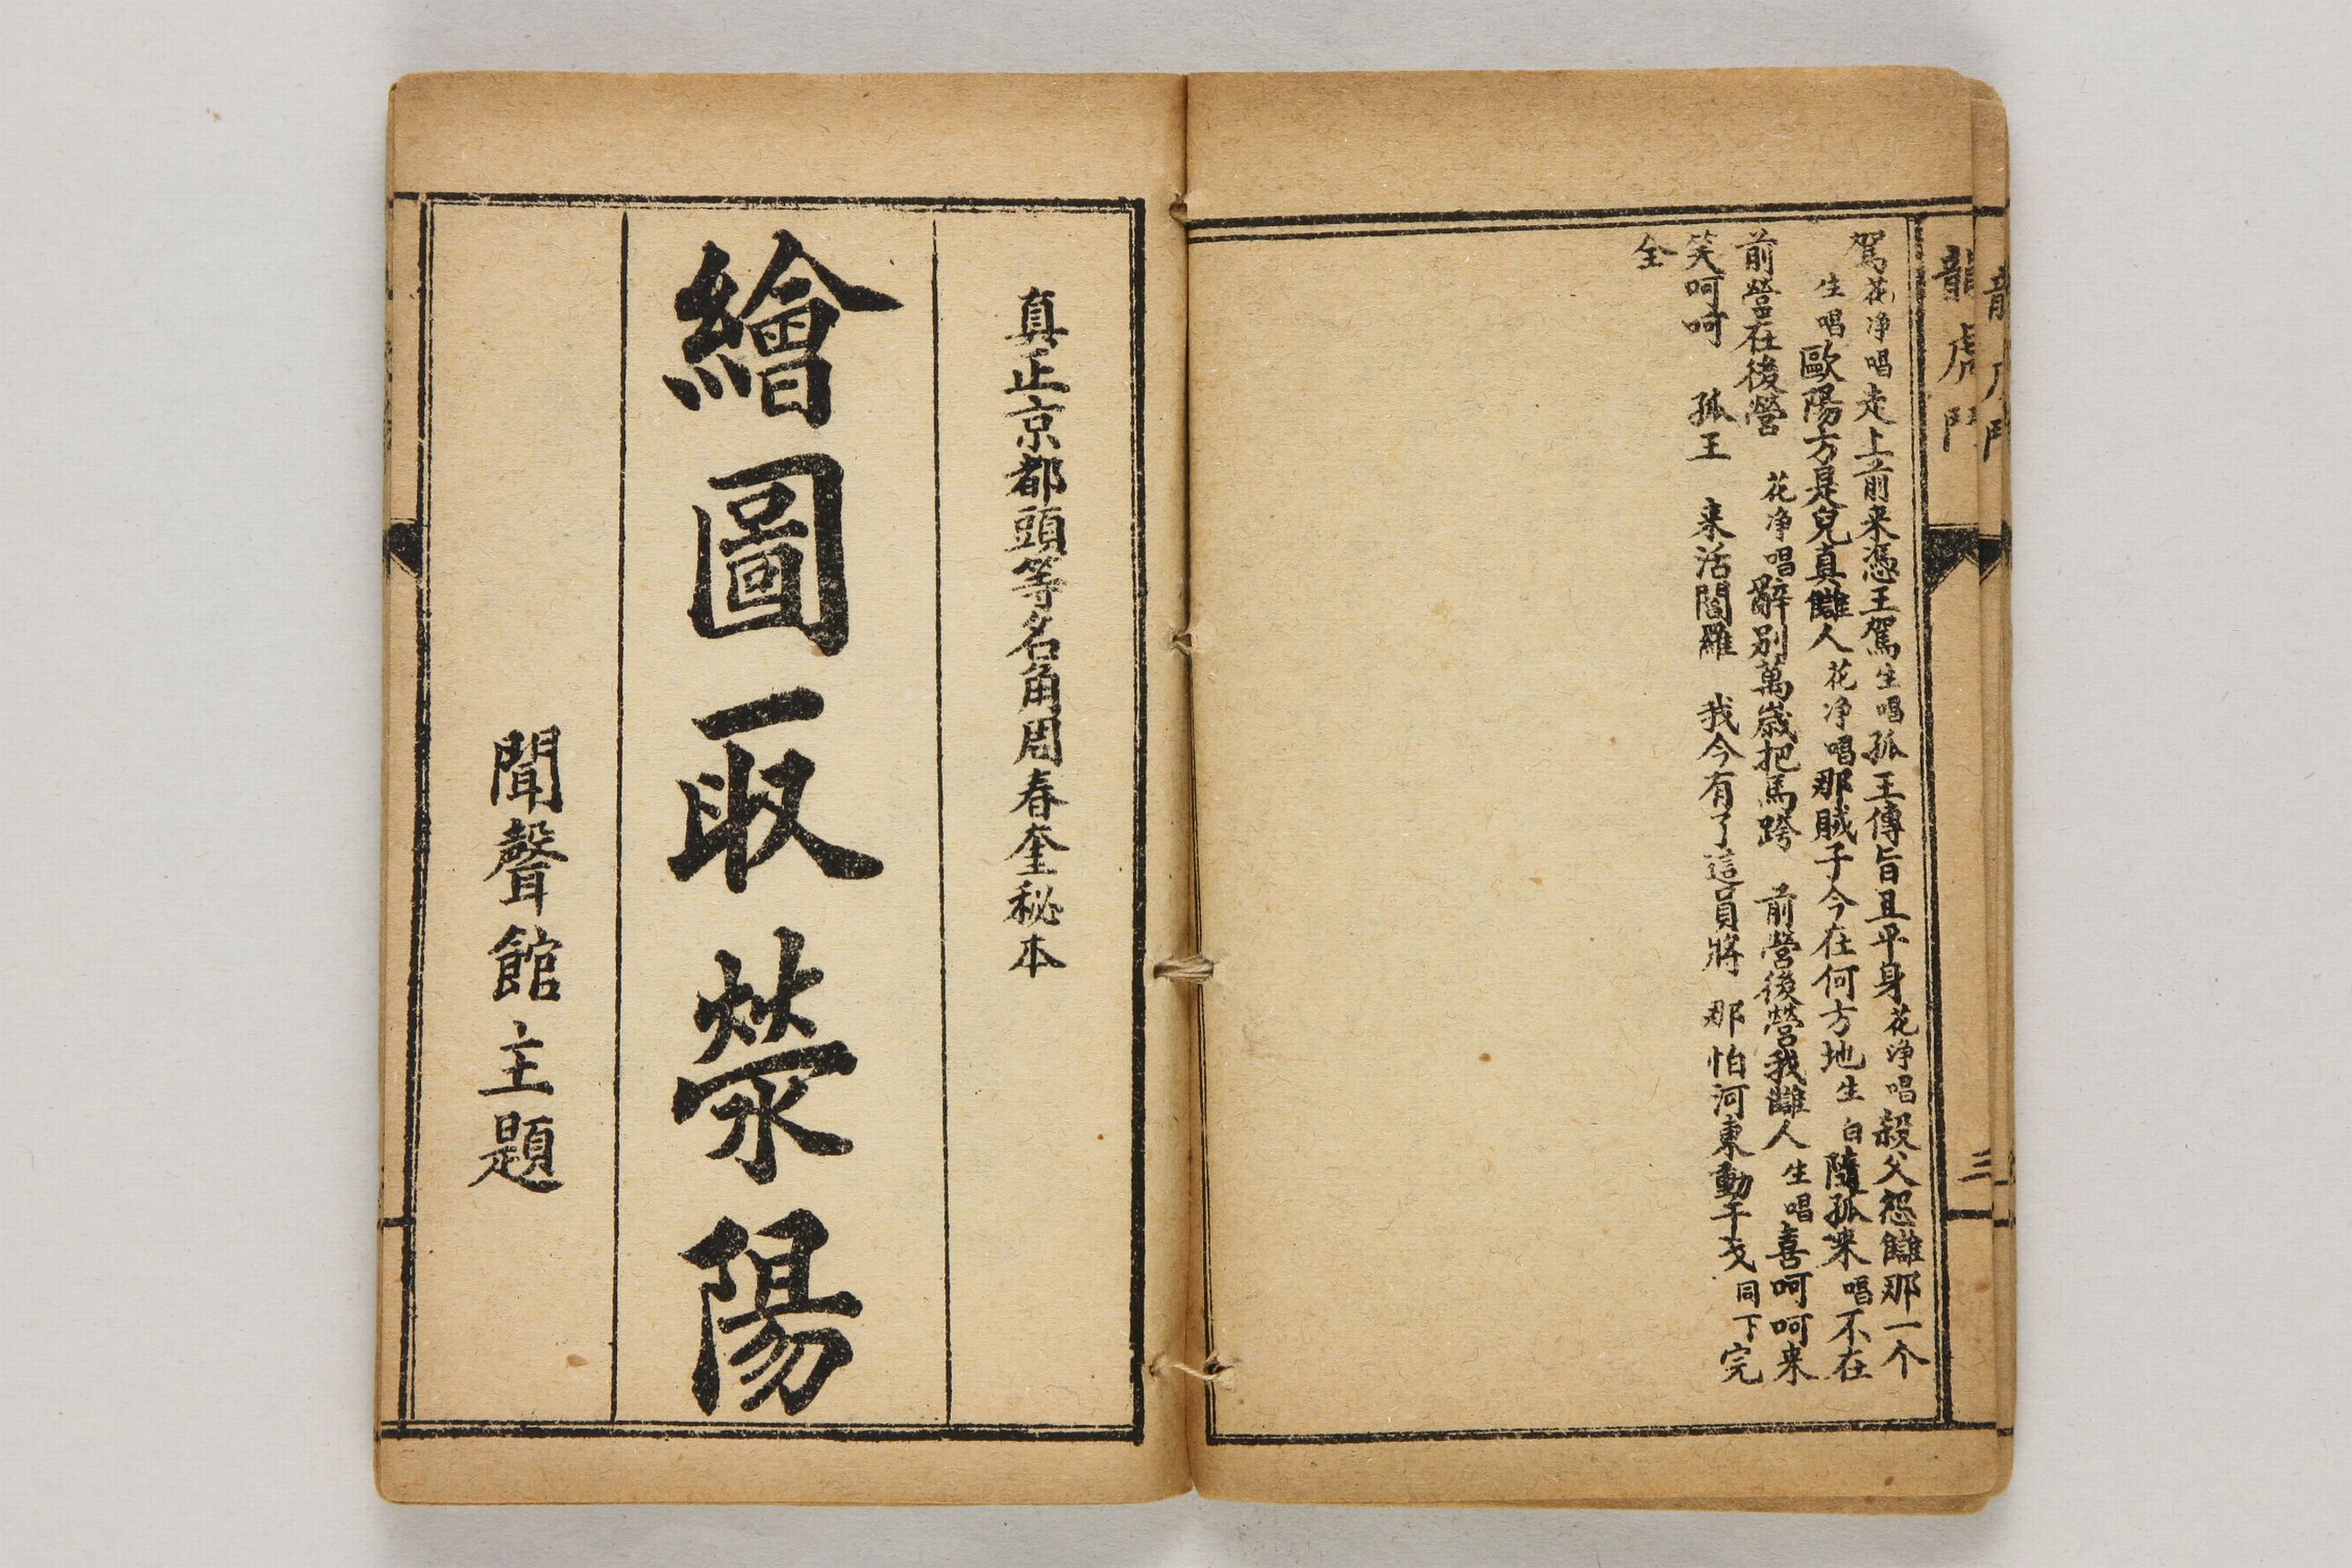 龍虎鬥
三
駕花淨唱走上前来憑王駕生唱孤王傳旨且平身花淨唱殺父怨讎那一个
生唱歐陽方是兒真讎人花淨唱那賊子今在何方地生白隨孤来唱不在
前營在後營 花淨唱辭别萬歲把馬跨 前營後營我讎人生唱喜呵呵来
笑呵呵 孤王 来活閻羅 我今有了這員將 那怕河東動干戈同下完
全
真正京都頭等名角周春奎秘本
繪圖取滎陽
聞聲館主題